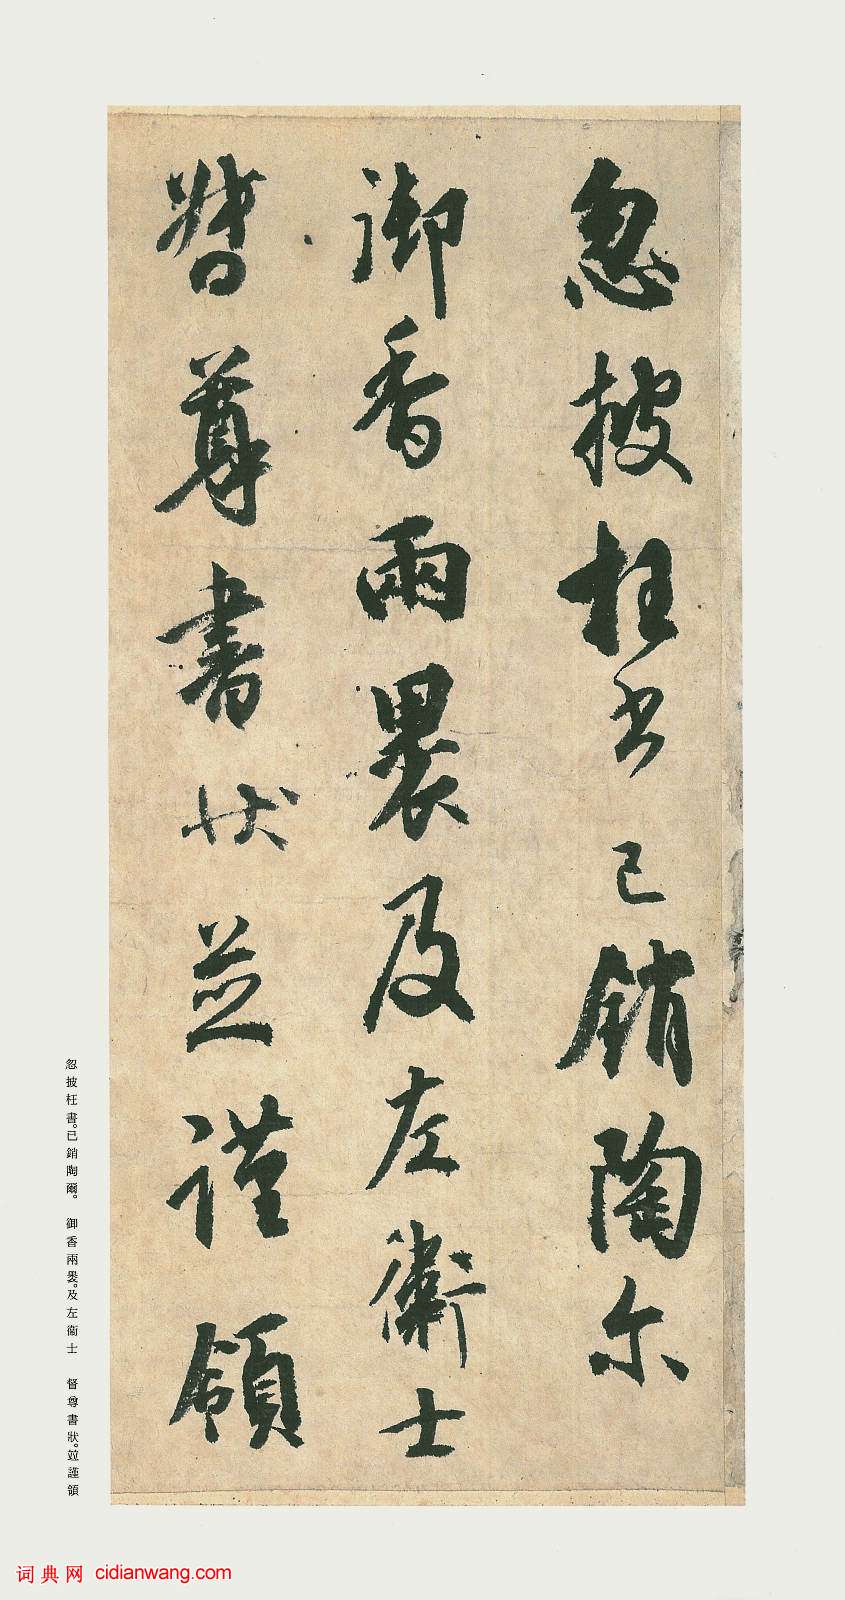 忽披枉書已銷陶尓
御香兩褁及左衛士
督尊書状並謹領
忽披枉書。已銷陶爾。 御香兩褁。及左衞士 督尊書狀。竝謹領
词典网 cidianwang.com